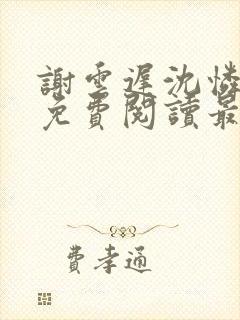 謝雲遲沈憐
免費閱讀最
費孝通